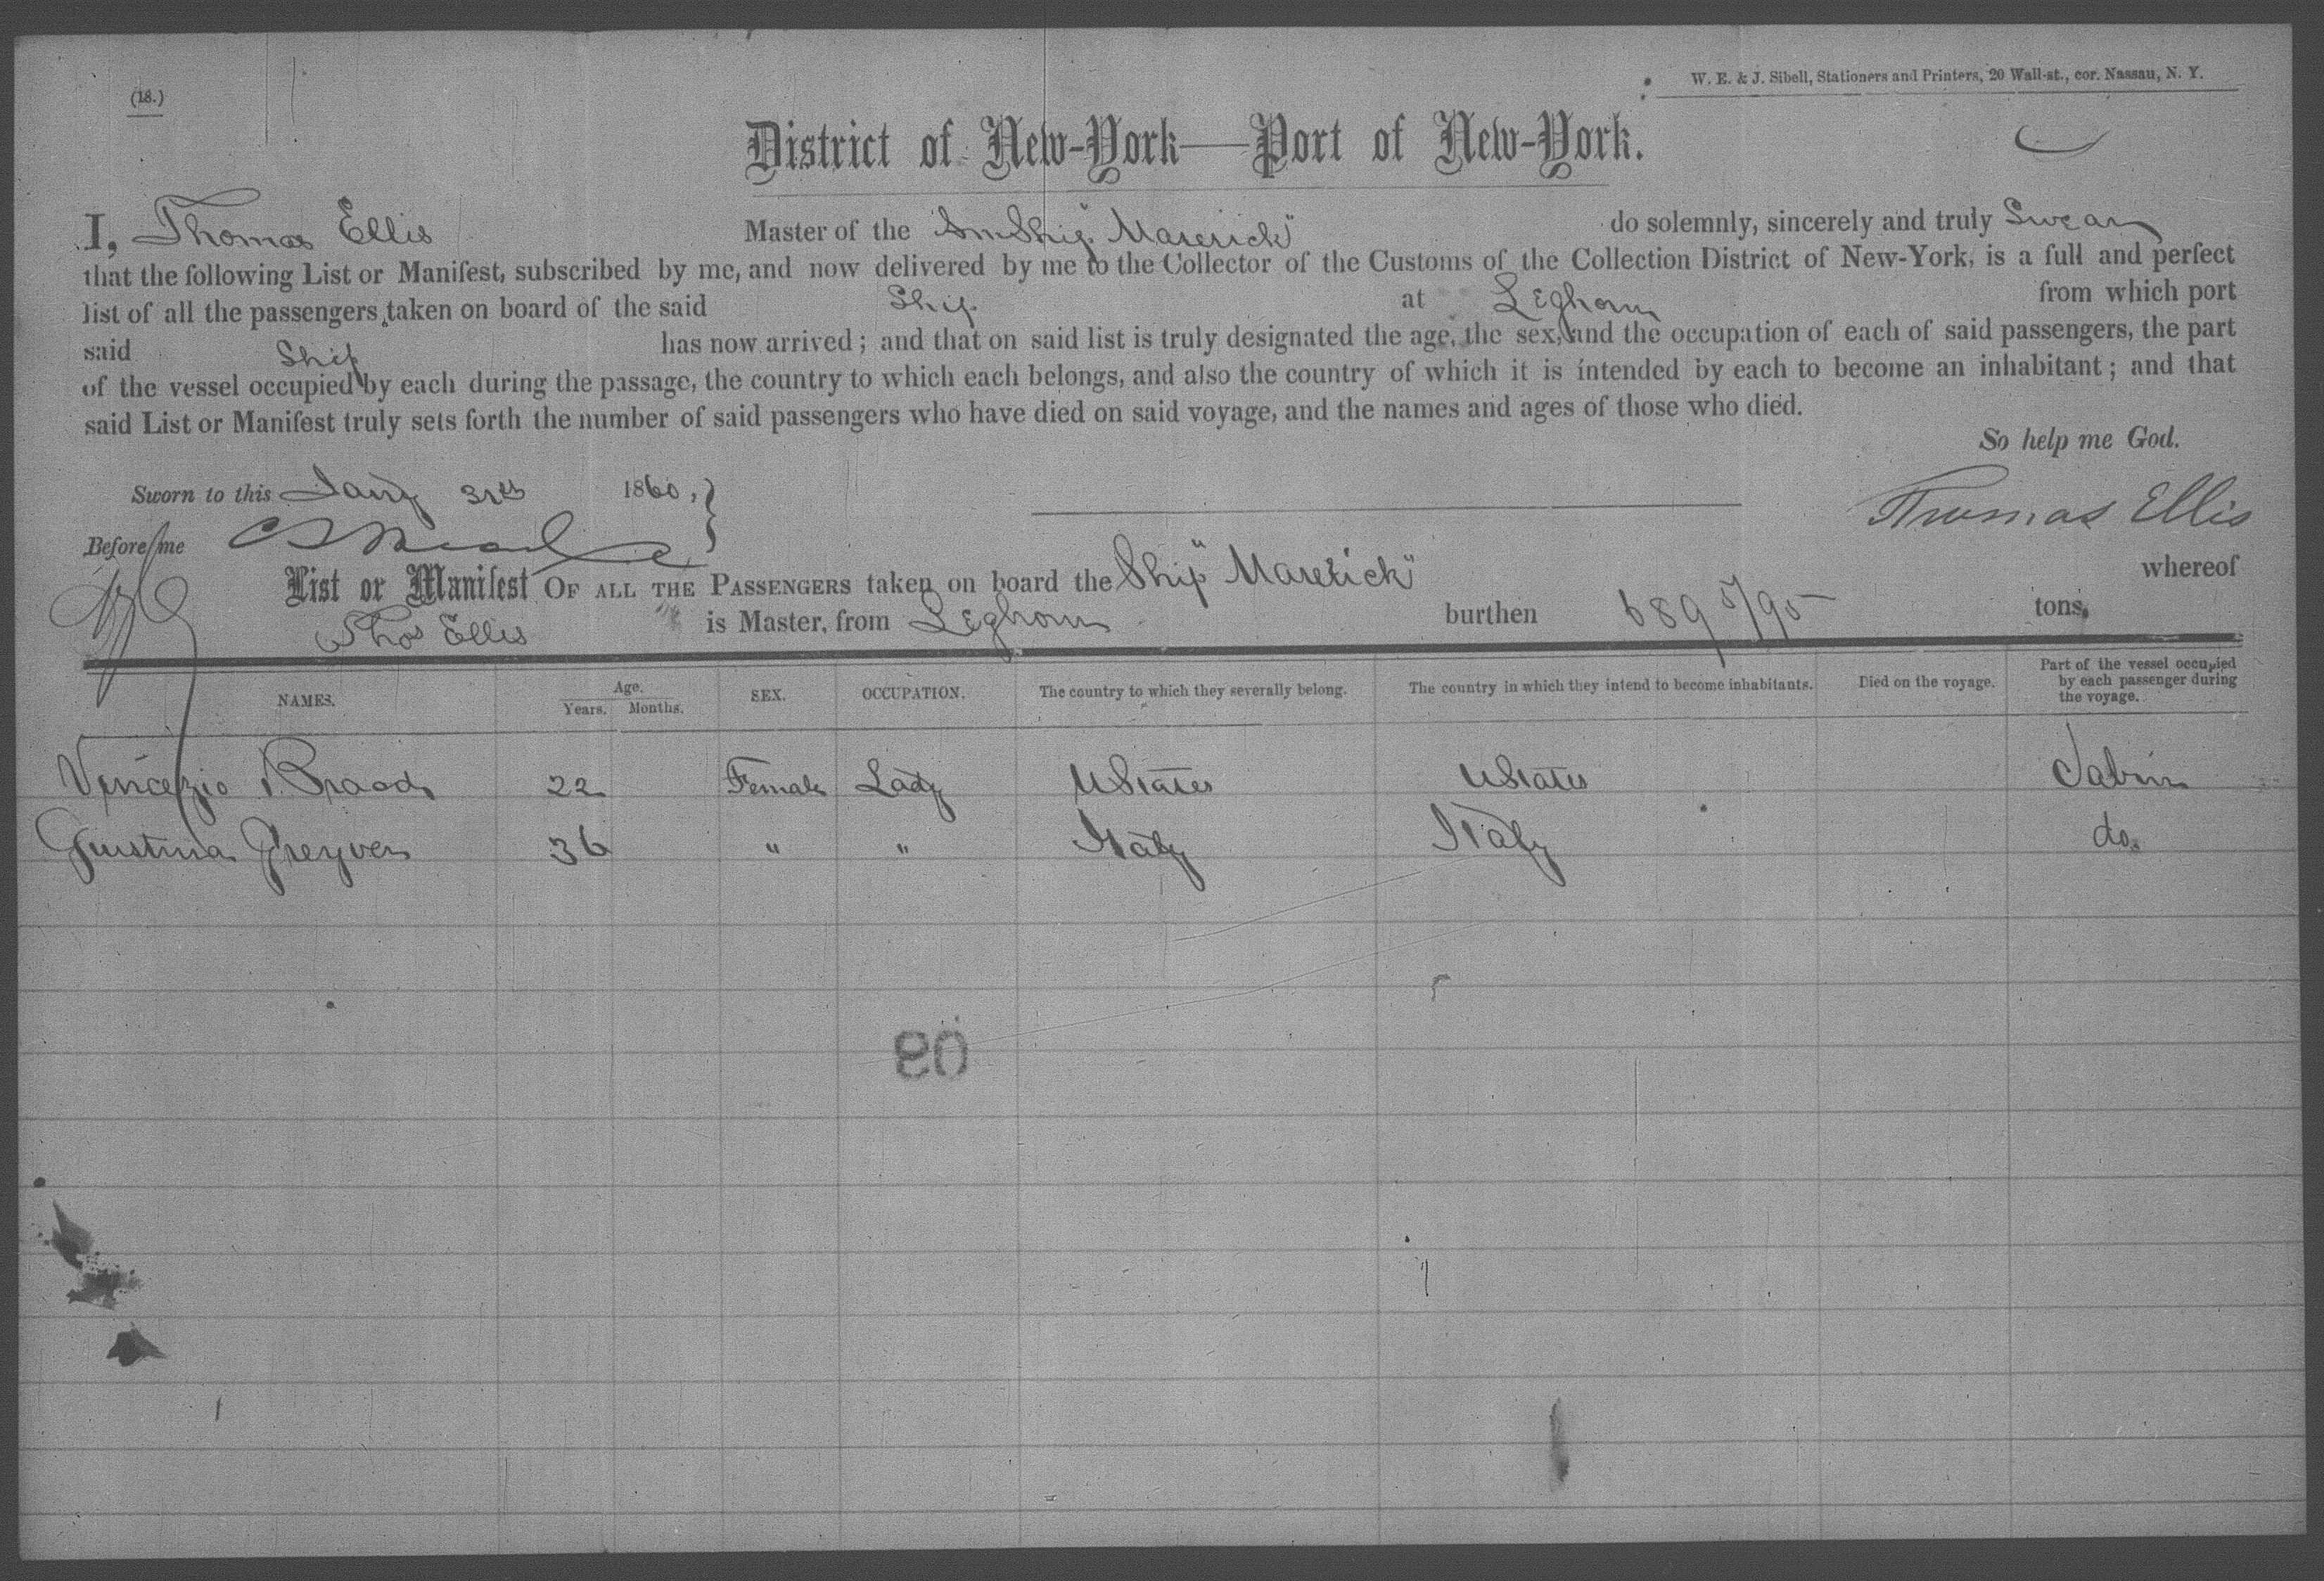 (18.)
W. E. & J. Sibell, Stationers and Printers, 20 Wall-st., cor. Nassau, N. Y.
District of New-York—Port of New-York.
I, Thomas Ellis Master of the Ship "Maverick" do solemnly, sincerely and truly Swear
that the following List or Manifest, subscribed by me, and now delivered by me to the Collector of the Customs of the Collection District of New-York, is a full and perfect
list of all the passengers taken on board of the said Ship at Leghorn from which port
said Ship has now arrived; and that on said list is truly designated the age, the sex, and the occupation of each of said passengers, the part
of the vessel occupied by each during the passage, the country to which each belongs, and also the country of which it is intended by each to become an inhabitant; and that
said List or Manifest truly sets forth the number of said passengers who have died on said voyage, and the names and ages of those who died.
So help me God.
Sworn to this Jany 31st 1860,
Thomas Ellis
Before me
List or Manifest OF ALL THE PASSENGERS taken on board the Ship "Maverick" whereof
Thos Ellis is Master, from Leghorn burthen 689 5/95 tons.
NAMES. Age. Years. Months. SEX. OCCUPATION. The country to which they severally belong. The country in which they intend to become inhabitants. Died on the voyage. Part of the vessel occupied by each passenger during the voyage.
22 Female Lady UStates UStates Cabin
36 " " Italy Italy do.